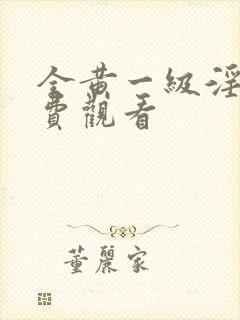 全黄一級淫
費觀看
董麗家